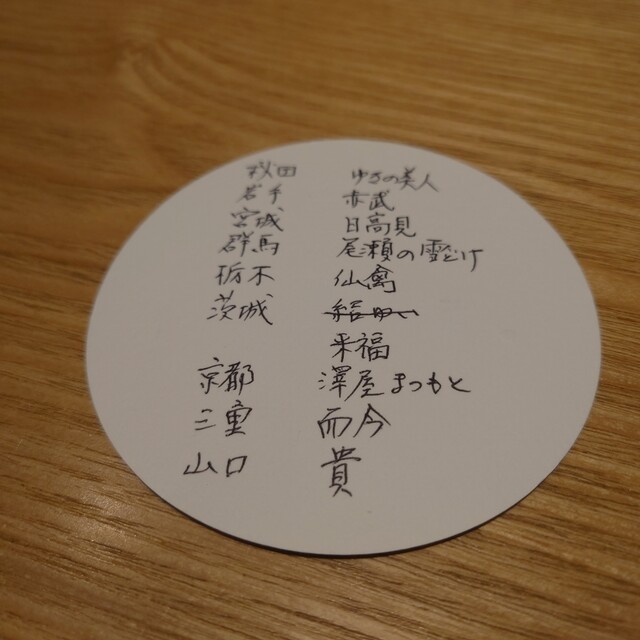 秋田 ゆきの美人
岩手 赤武
宮城 日高見
群馬 尾瀬の雪どけ
栃木 仙禽
茨城 結ゆい
来福
京都 澤屋まつもと
三重 而今
山口 貴